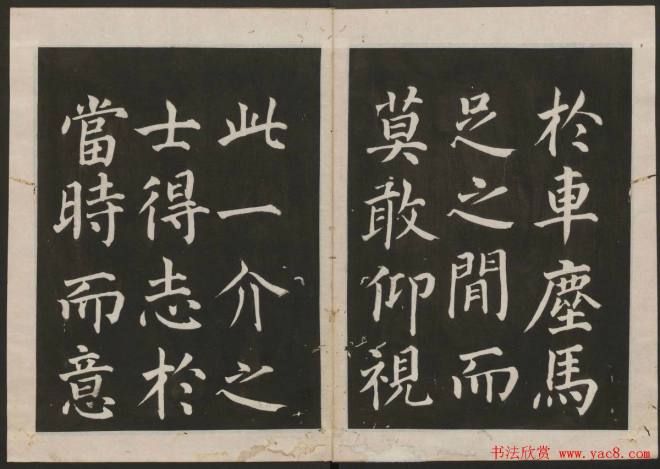 於車塵馬
足之間而
莫敢仰視
此一介之
士得志於
當時而意
书法欣赏 www.yac8.com